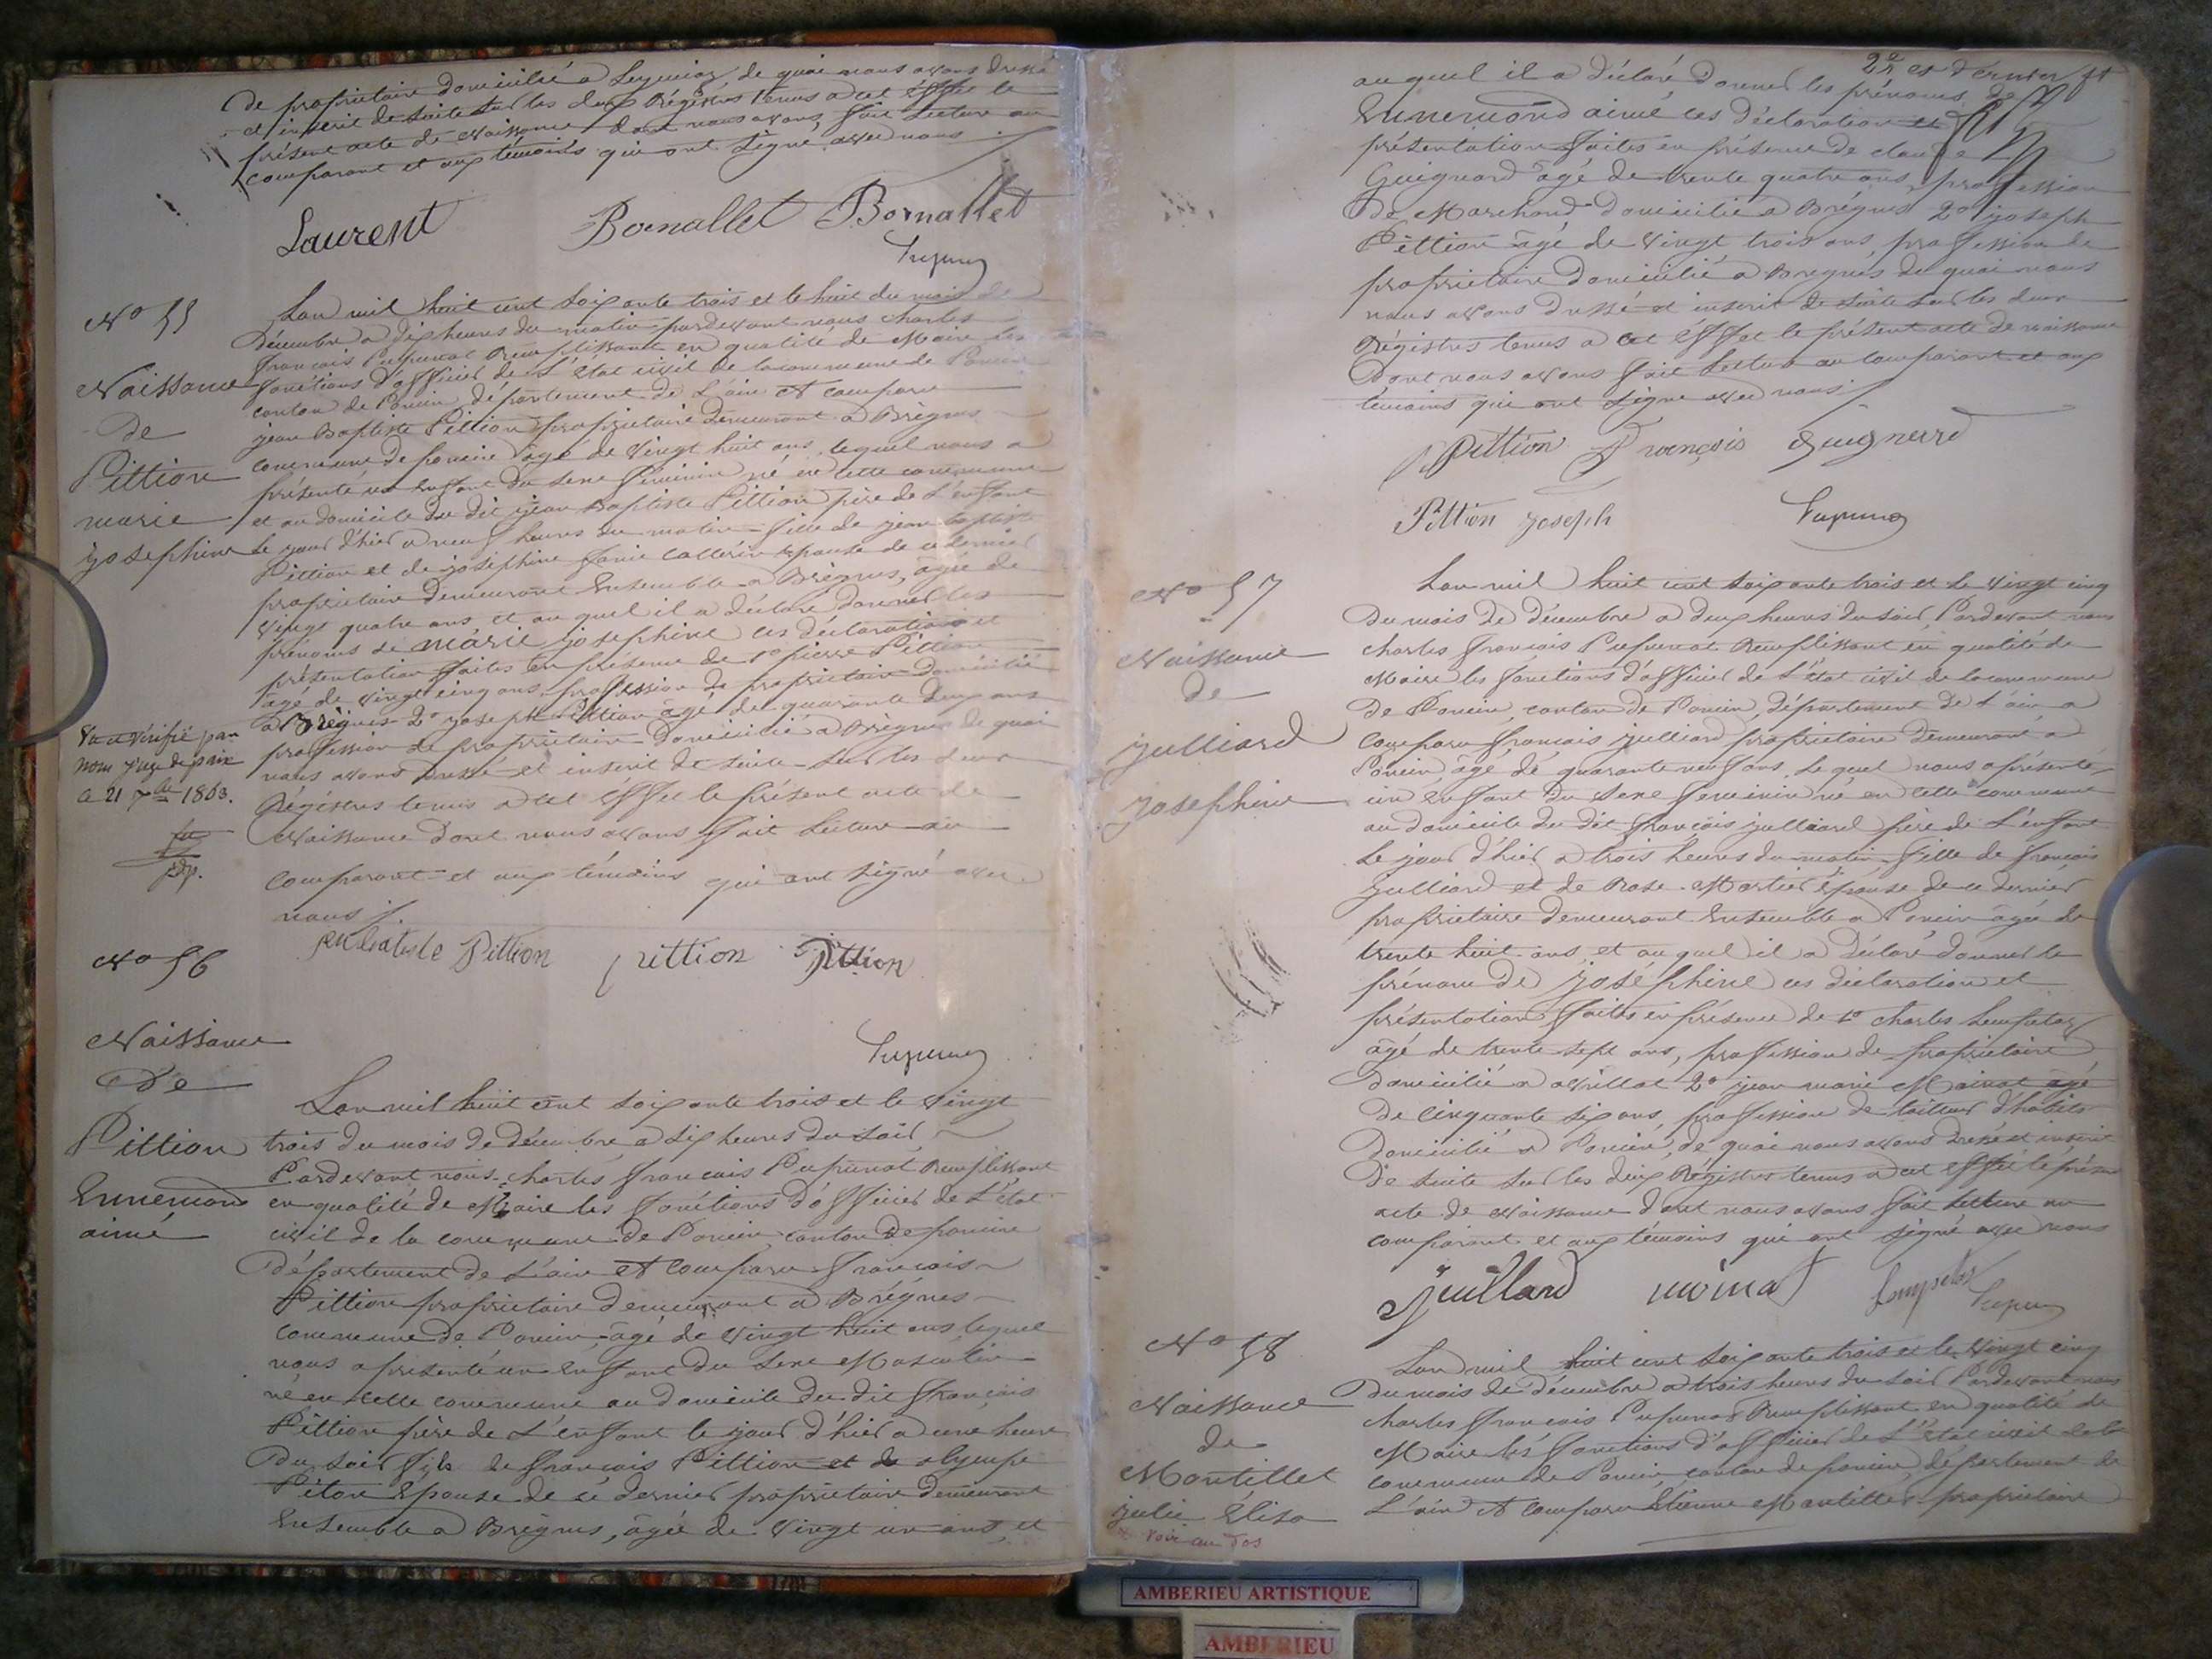 de propriétaire domicilié a Leymiaz, de quoi nous avons dressé
et inscrit de suite sur les deux Régistres tenus a cet effet le
présent acte de Naissance dont nous avons fait Lecture au
comparant et aux témoins qui ont signé avec nous
Laurent Bornallet Bornallet
No 55
Naissance
de
Pittion
marie
josephine
Lan mil huit cent soixante trois et le huit du mois de
Décembre a dix heures du matin pardevant nous charles
francois Pupunat Remplissant en qualité de Maire les
fonctions d'officier de L'état civil de la commune de Poncin
canton de Poncin, département de L'ain et comparu
jean Baptiste Pittion propriétaire demeurant a Brégnes
commune de poncin agé de vingt huit ans, lequel nous a
présenté un enfant du sexe féminin né en cette commune
et au domicile du dit jean Baptiste Pittion père de L'enfant
Le jour d'hier a neuf heures du matin fille de jean baptiste
Pittion et de joséphine fanie epouse de ce dernier
propriétaire demeurant Ensemble a Brégnes, agée de
vingt quatre ans, et au quel il a déclaré donner les
prénoms de marie josephine ces déclaration et
présentation faites en présence de 1o pierre Pittion
âgé de vingt cinq ans profession de propriétaire domicilié
a Brégnes 2o joseph Pittion âgé de quarante deux ans
profession de propriétaire domicilié a Brégnes de quoi
nous avons dressé et inscrit de suite sur les deux
Régistres tenus a cet effet le présent acte de
Naissance dont nous avons fait lecture au
comparant et aux témoins qui ont signé avec
nous
Vu et vérifié par
nous juge de paix
le 21 7bre 1863.
jdp.
jn batiste Pittion pittion Pittion
No 56
Naissance
de
Pittion
Ennemond
aimé
Lan mil huit cent soixante trois et le vingt
trois du mois de décembre a six heures du soir
Pardevant nous charles francois Pupunat Remplissant
en qualité de Maire les fonctions d'officier de L'état
civil de la commune de Poncin canton de poncin
département de L'ain et comparu francois
Pittion propriétaire demeurant a Brégnes
commune de Poncin âgé de vingt huit ans lequel
nous a présenté un Enfant du sexe Masculin
né en cette commune au domicile du dit francois
Pittion père de L'enfant le jour d'hier a une heure
du soir fils de francois Pittion et de olympe
Piton Epouse de ce dernier propriétaire demeurant
Ensemble a Brégnes, agée de vingt un ans, et
22 et dernier ft
au quel il a déclaré donner les prénoms de
Ennemond aimé ces déclaration et
présentation faites en présence de claude
Guignard âgé de trente quatre ans profession
de Marchand domicilié a Brégnes 2o joseph
Pittion âgé de vingt trois ans profession de
propriétaire domicilié a Brégnes de quoi nous
nous avons dressé et inscrit de suite sur les deux
Régistres tenus a cet effet le présent acte de naissance
Dont nous avons fait lecture au comparant et aux
témoins qui ont signé avec nous
Pittion François Guignard
Pittion joseph
No 57
Naissance
de
julliard
joséphine
Lan mil huit cent soixante trois et le vingt cinq
du mois de décembre a deux heures du soir Pardevant nous
charles francois Pupunat Remplissant en qualité de
Maire les fonctions d'officier de L'état civil de la commune
de Poncin, canton de Poncin, département de L'ain a
comparu francois julliard propriétaire demeurant a
Poncin, âgé de quarante neuf ans, Le quel nous a présenté
un enfant du sexe féminin né en cette commune
au domicile du dit francois julliard père de L'enfant
Le jour d'hier a trois heures du matin fille de francois
julliard et de Rose Mortier épouse de ce dernier
propriétaire demeurant Ensemble a Poncin âgée de
trente huit ans, et au quel il a déclaré donner le
prénom de joséphine ces déclaration et
présentation faites en présence de 1o charles
âgé de trente sept ans, profession de propriétaire
domicilié a avrillat 2o jean marie Moinat âgé
de cinquante six ans, profession de tailleur d'habits
domicilié a Poncin, de quoi nous avons dressé et inscrit
de suite sur les deux Régistres tenus a cet effet le présent
acte de Naissance dont nous avons fait lecture au
comparant et aux témoins qui ont signé avec nous
Juillard moinat
No 58
Naissance
de
Montillet
julie Élisa
voir au dos
Lan mil huit cent soixante trois et le vingt cinq
du mois de décembre a trois heures du soir Pardevant nous
charles francois Pupunat Remplissant en qualité de
Maire les fonctions d'officier de L'Etat civil de la
commune de Poncin, canton de poncin, département de
L'ain et comparu Etienne Montillet propriétaire
AMBERIEU ARTISTIQUE
AMBERIEU